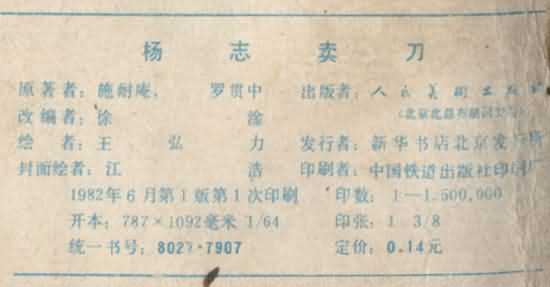 杨志卖刀
原著者：施耐庵、罗贯中 出版者：人民美術出版
改编者：徐淦 （北京北总布胡同32号）
绘者：王弘力 发行者：新华书店北京发行所
封面绘者：江浩 印刷者：中国铁道出版社印刷厂
1982年6月第1版第1次印刷 印数：1—1,500,000
开本：787×1092毫米 1/64 印张：1 3/8
统一书号：8027·7907 定价：0.14元